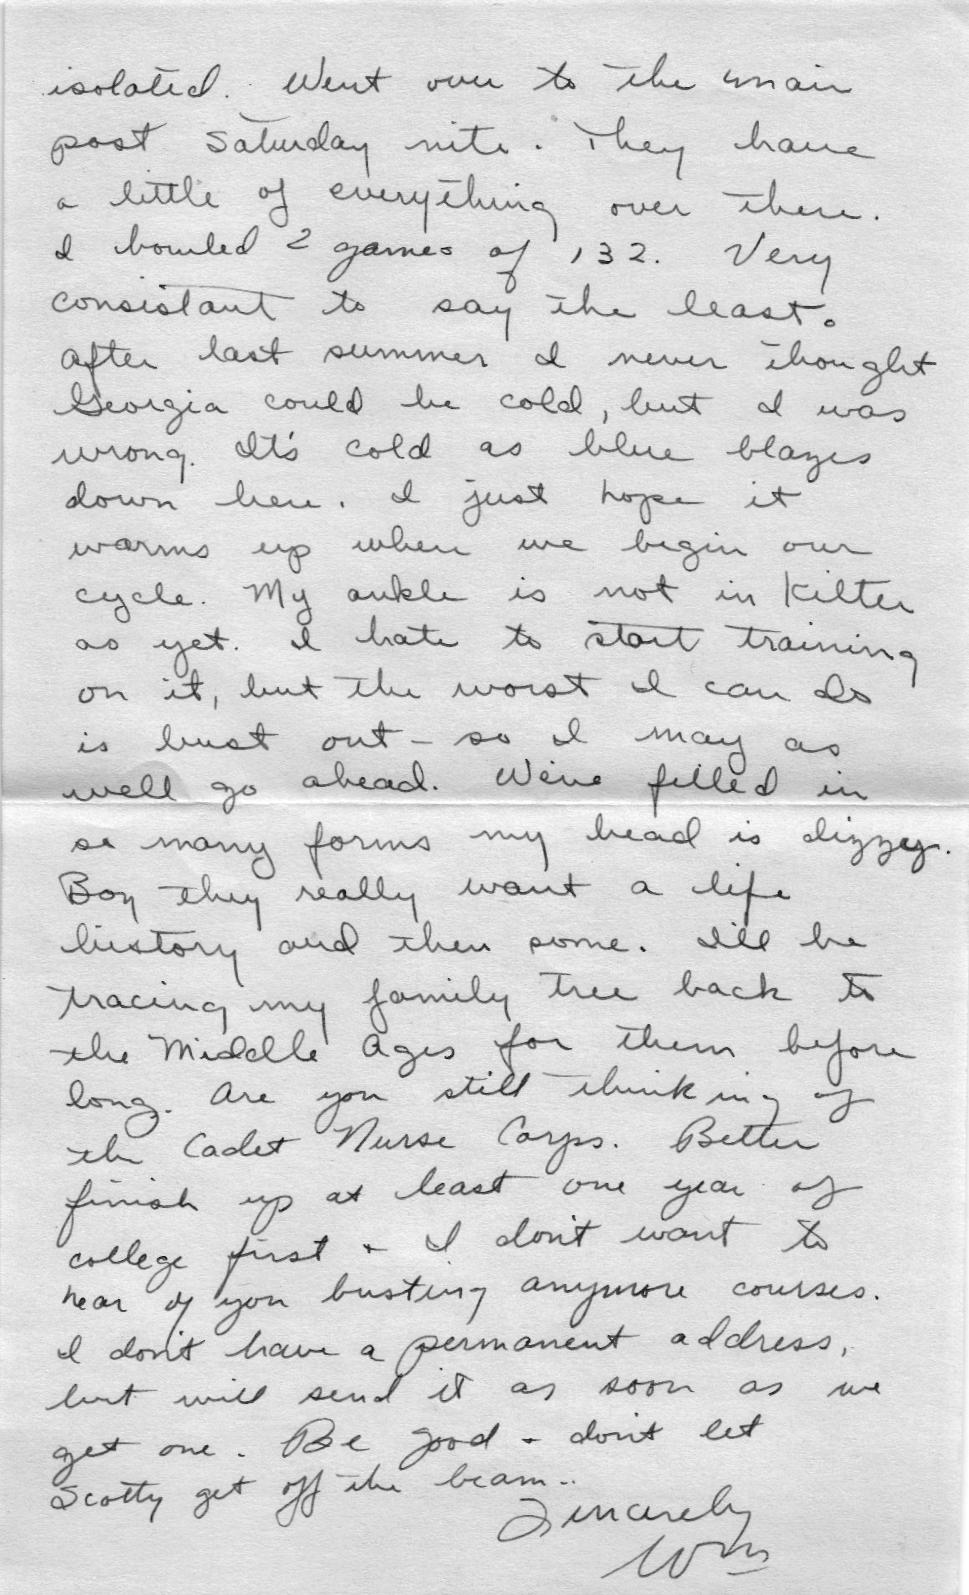 isolated. Went over to the main
post Saturday nite. They have
a little of everything over there.
I bowled 2 games of 132. Very
consistant to say the least.
After last summer I never thought
Georgia could be cold, but I was
wrong. It's cold as blue blazes
down here. I just hope it
warms up when we begin our
cycle. My ankle is not in kilter
as yet. I hate to start training
on it, but the worst I can do
is bust out - so I may as
well go ahead. We've filled in
so many forms my head is dizzy.
Boy they really want a life
history and then some. I'll be
tracing my family tree back to
the Middle Ages for them before
long. Are you still thinking of
the Cadet Nurse Corps. Better
finish up at least one year of
college first + I don't want to
hear of you busting anymore courses.
I don't have a permanent address,
but will send it as soon as we
get one. Be good - don't let
Scotty get off the beam..
Sincerely
Wm